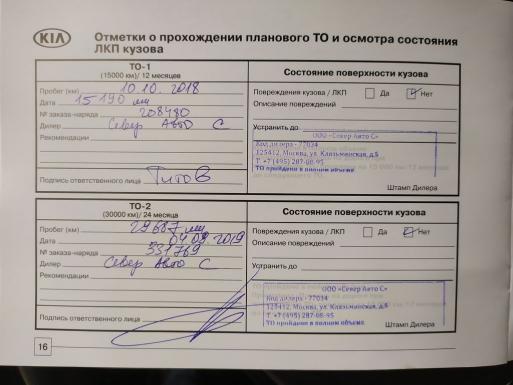 KIA
Отметки о прохождении планового ТО и осмотра состояния
ЛКП кузова
ТО-1
(15000 км)/ 12 месяцев
Пробег (км) 10.10.2018
Дата 15190 км
№ заказ-наряда 208480
Дилер Север Авто С
Рекомендации
Подпись ответственного лица Титов
Состояние поверхности кузова
Повреждения кузова / ЛКП Да Нет
Описание повреждений
Устранить до
ООО «Север Авто С»
Код дилера - 77034
125412, Москва, ул. Клязьминская, д.5
Т. +7 (495) 287-08-95
ТО пройдено в полном объеме
Штамп Дилера
ТО-2
(30000 км)/ 24 месяца
Пробег (км) 29687 км
Дата 04.09.2019
№ заказ-наряда 331769
Дилер Север Авто С
Рекомендации
Подпись ответственного лица
Состояние поверхности кузова
Повреждения кузова / ЛКП Да Нет
Описание повреждений
Устранить до
ООО «Север Авто С»
Код дилера - 77034
125412, Москва, ул. Клязьминская, д.5
Т. +7 (495) 287-08-95
ТО пройдено в полном объеме
Штамп Дилера
16